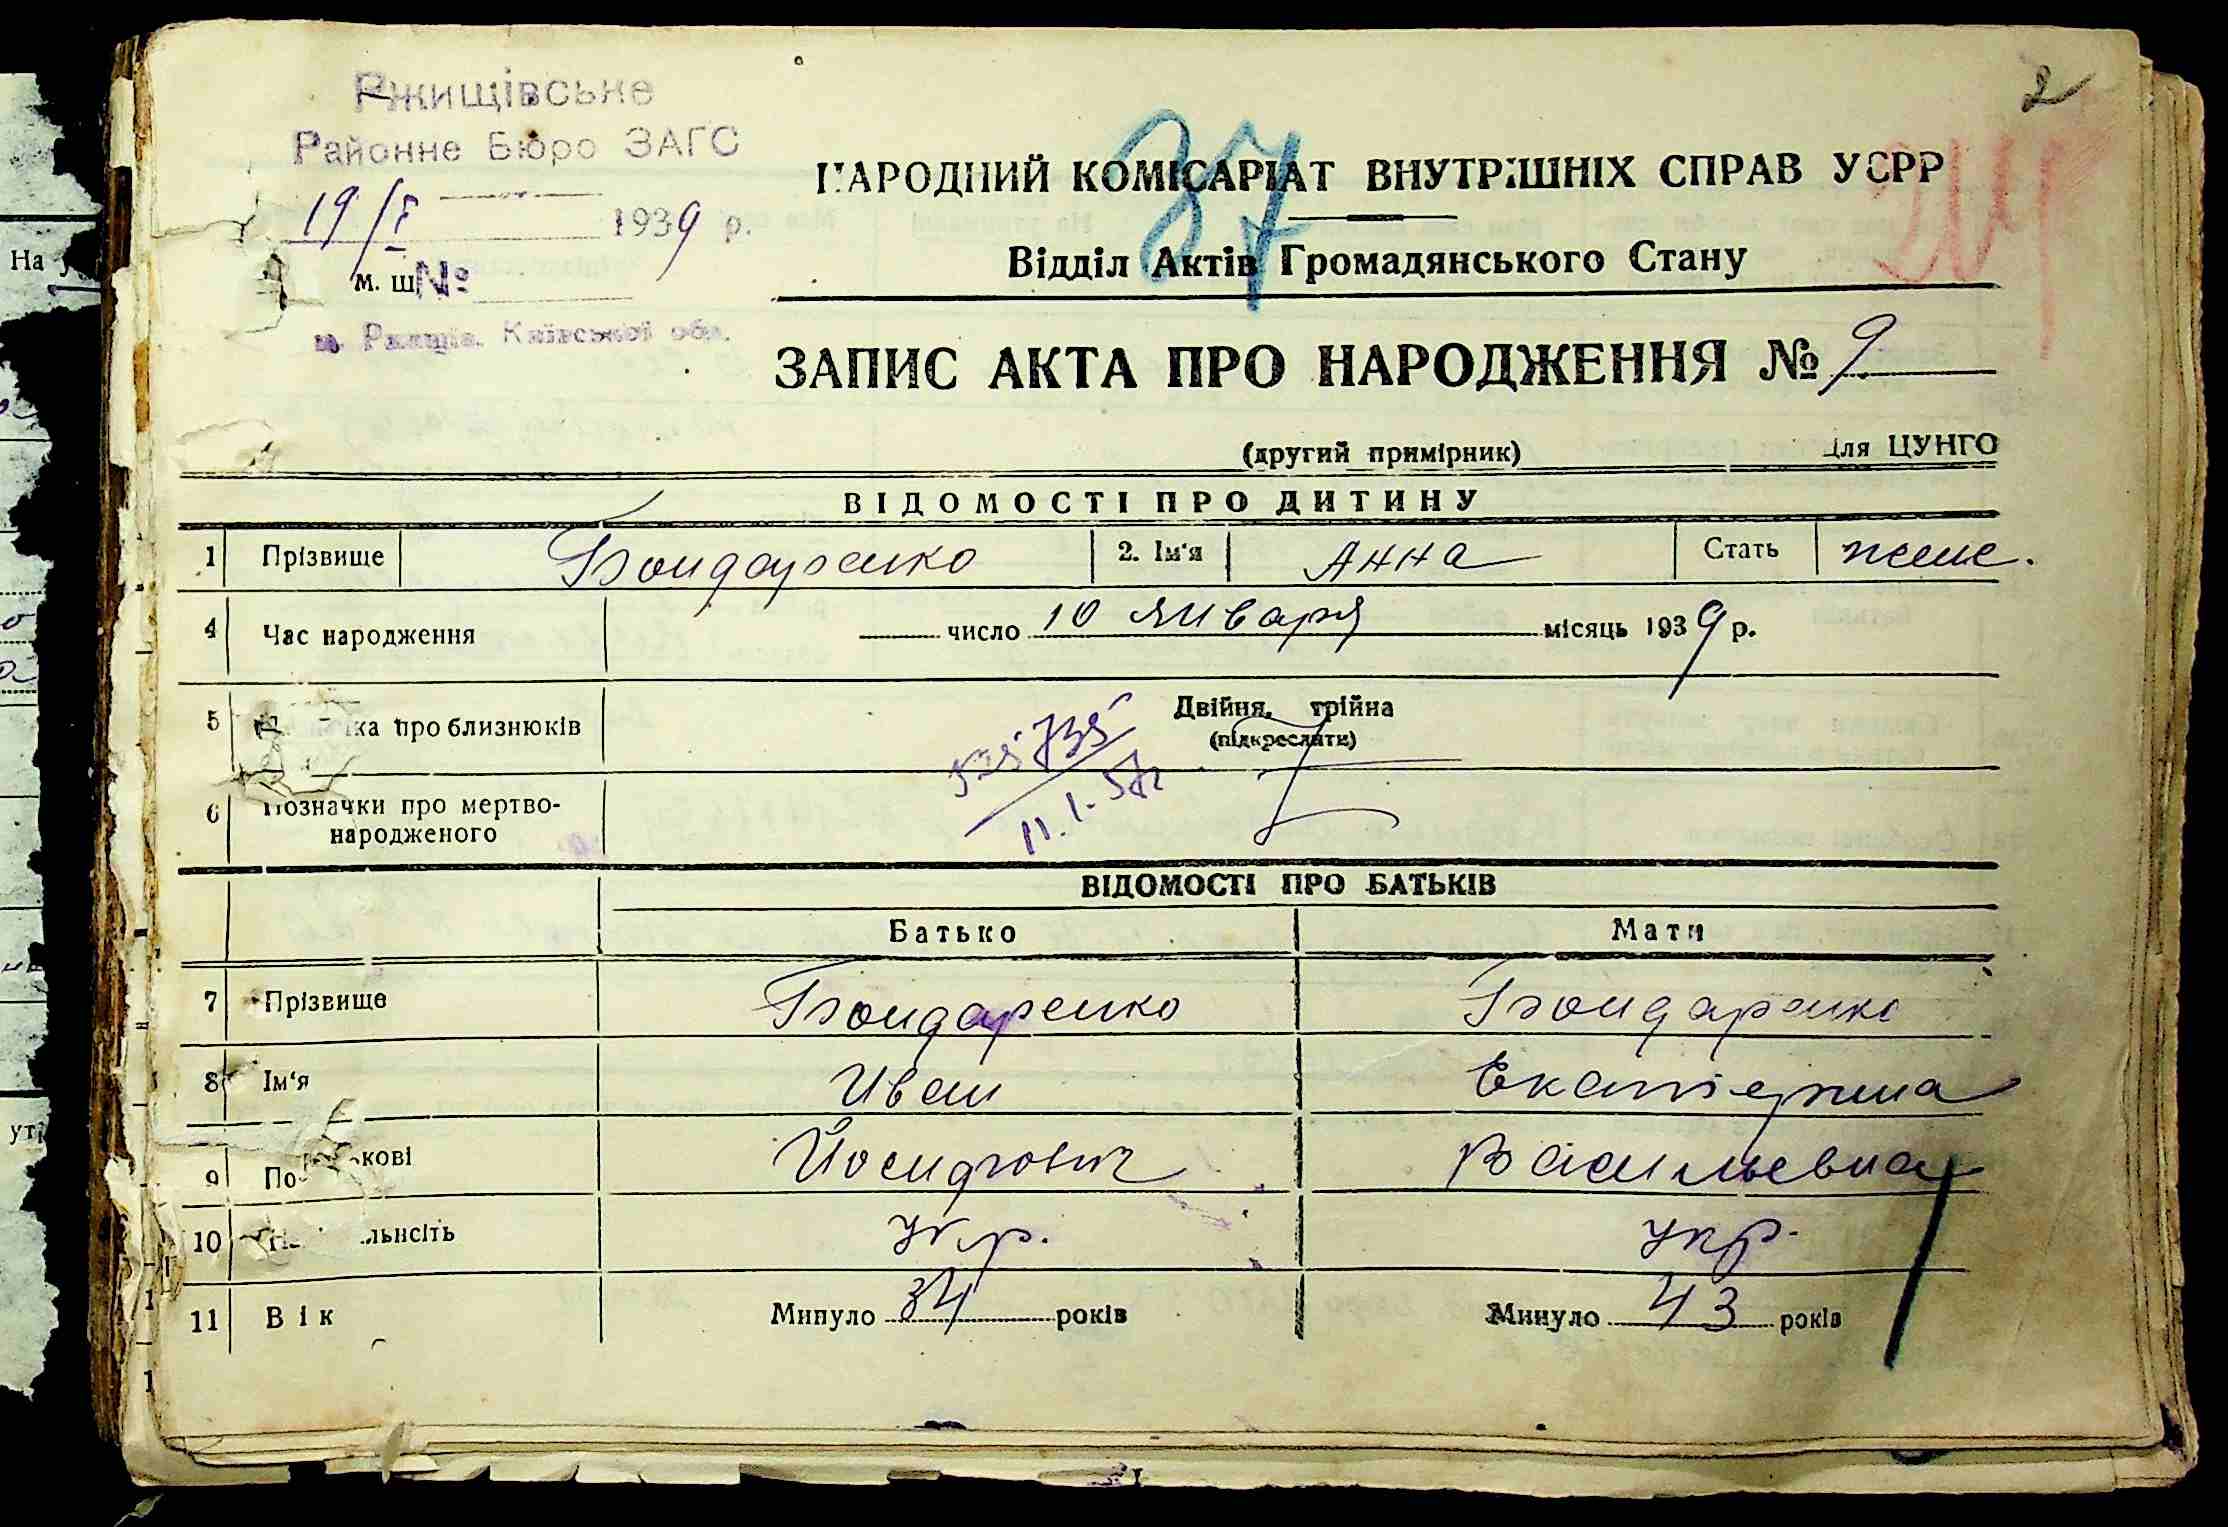 2
Ржищівське
Районне Бюро ЗАГС
19/I 1939 р.
м. ш. №
м. Ржищів, Київської обл.
37
НАРОДНИЙ КОМІСАРІАТ ВНУТРІШНІХ СПРАВ УСРР
Відділ Актів Громадянського Стану
ЗАПИС АКТА ПРО НАРОДЖЕННЯ № 9
(другий примірник) Для ЦУНГО
ВІДОМОСТІ ПРО ДИТИНУ
1 Прізвище Бондаренко 2. Ім'я Анна Стать женс.
4 Час народження число 10 января місяць 1939 р.
5 про близнюків Двійня, трійна
(підкреслити)
535735
11.I.57г
6 Позначки про мертво-
народженого
ВІДОМОСТІ ПРО БАТЬКІВ
Батько Мати
7 Прізвище Бондаренко Бондаренко
8 Ім'я Иван Екатерина
9 По кові Йосифович Васильевна
10 льність укр. укр.
11 Вік Минуло 34 років Минуло 43 років
На